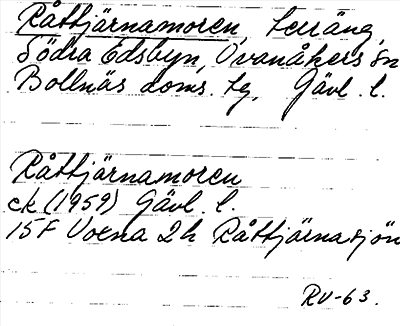 Råttjärnamoren, terräng,
Södra Edsbyn, Ovanåkers sn
Bollnäs doms. tg, Gävl. l.
Råttjärnamoren
ek (1959) Gävl. l.
15F Voxna 2h Råttjärnasjön
RV-63.